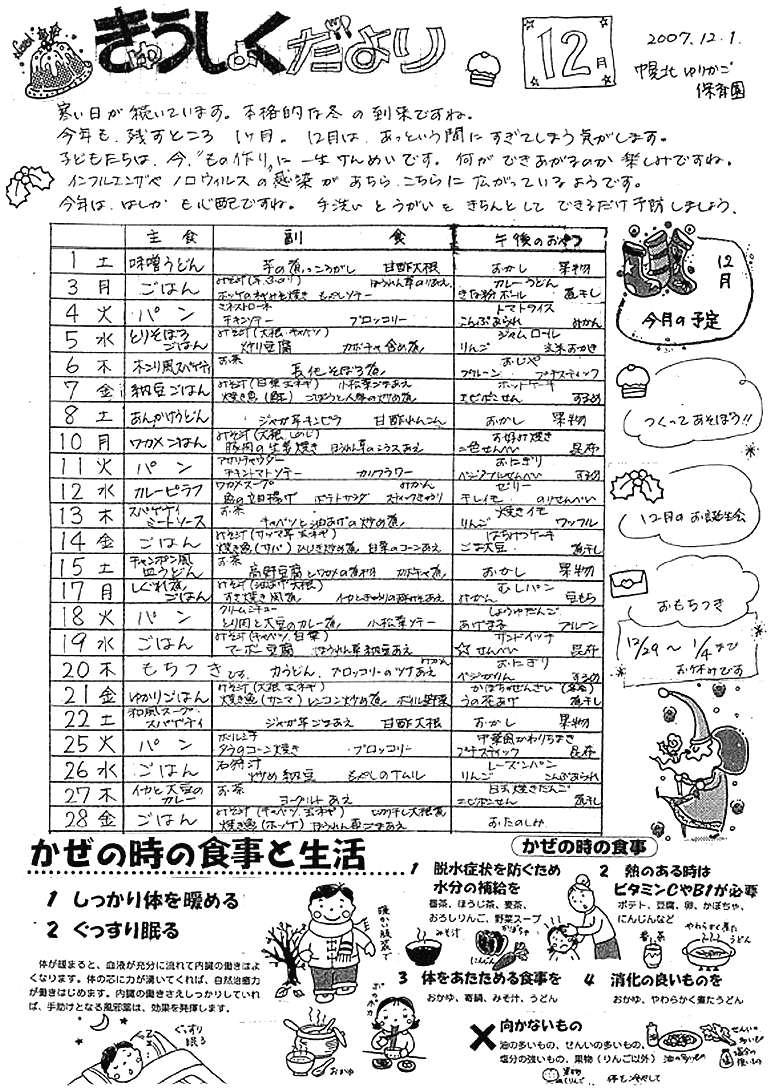 きゅうしょくだより
12月
2007.12.1.
幌北ゆりかご
保育園
寒い日が続いています。本格的な冬の到来ですね。
今年も、残すところ1ヶ月。12月は、あっという間にすぎてしまう気がします。
子どもたちは、今、"もの作り"に一生けんめいです。何ができあがるのか楽しみですね。
インフルエンザやノロウィルスの感染があちらこちらに広がっているようです。
今年は、はしかも心配ですね。手洗いとうがいときちんとしてできるだけ予防しましょう、
主食 副食 午後のおやつ
1 土 味噌うどん 芋の煮っころがし 甘酢大根 おかし 果物
3 月 ごはん カレーうどん 煮干し
4 火 パン ミネストローネ チキンソテー ブロッコリー トマトライス こんぶあられ みかん
5 水 とりそぼろごはん みそ汁(大根、キャベツ) 炒り豆腐 カボチャ含め煮 ジャムロール りんご 玄米おかき
6 木 きのこ風スパゲティ お茶 おじや プルーン プチスティック
7 金 納豆ごはん みそ汁(白菜、玉ネギ) 小松菜ごまあえ 焼き魚(鮭) ごぼうと人参の炒め煮 ホットケーキ エビポンせん するめ
8 土 あんかけうどん ジャガ芋キンピラ 甘酢れんこん おかし 果物
10 月 ワカメごはん みそ汁(大根、しめじ) 豚肉の生姜焼き お好み焼き 二色せんべい 昆布
11 火 パン アサリチャウダー チキントマトソテー カリフラワー おにぎり ベジタブルせんべい するめ
12 水 カレーピラフ ワカメスープ みかん 魚の竜田揚げ ポテトサラダ スティックきゅうり ゼリー のりせんべい
13 木 スパゲティミートソース お茶 キャベツと油あげの炒め煮 焼きイモ りんご ワッフル
14 金 ごはん みそ汁(サツマ芋、玉ネギ) 焼き魚(サバ) ひじき炒め煮 白菜のコーンあえ はちみつケーキ ごま大豆 煮干し
15 土 チャンポン風皿うどん お茶 高野豆腐とワカメの煮物 カボチャ煮 おかし 果物
17 月 しぐれ煮ごはん みそ汁(油あげ、大根) すき焼き風煮 むしパン みかん 豆もち
18 火 パン クリームシチュー とり肉と大豆のカレー煮 小松菜ソテー しょうゆだんご あげ玉子 プルーン
19 水 ごはん みそ汁(キャベツ、白菜) マーボー豆腐 ほうれん草納豆あえ サンドイッチ ☆せんべい 昆布
20 木 もちつきです。 力うどん、ブロッコリーのツナあえ みかん おにぎり するめ
21 金 ゆかりごはん みそ汁(大根、玉ネギ) 焼き魚(サンマ) レンコン炒め煮 ボイル野菜 かぼちゃぜんざい(冬至) うの花あげ 煮干し
22 土 和風スープスパゲティ ジャガ芋ごまあえ 甘酢大根 おかし 果物
25 火 パン ボルシチ タラのコーン焼き ブロッコリー 中華風かわりちまき プチスティック 昆布
26 水 ごはん 石狩汁 炒め納豆 もやしのナムル レーズンパン りんご こんぶあられ
27 木 イカと大豆のカレー お茶 ヨーグルトあえ お玉焼きだんご エビポンせん 煮干し
28 金 ごはん みそ汁(キャベツ、玉ネギ) 切り干し大根煮 焼き魚(ホッケ) ほうれん草ごまあえ おたのしみ
12月
今月の予定
つくってあそぼう!!
12月のお誕生会
おもちつき
12/29〜1/4まで
お休みです
かぜの時の食事と生活
1 しっかり体を暖める
2 ぐっすり眠る
体が暖まると、血液が充分に流れて内臓の働きはよ
くなります。体の芯に力が湧いてくれば、自然治癒力
が働きはじめます。内臓の働きさえしっかりしていれ
ば、手助けとなる風邪薬は、効果を発揮します。
ぐっすり
眠る
暖かい服装で
おかゆ
かぜの時の食事
1 脱水症状を防ぐため
水分の補給を
番茶、ほうじ茶、麦茶、
おろしりんご、野菜スープ
みそ汁
かぼちゃ
にんじん
2 熱のある時は
ビタミンCやB1が必要
ポテト、豆腐、卵、かぼちゃ、
にんじんなど
番茶
やわらかく煮た
うどん
3 体をあたためる食事を
おかゆ、寄鍋、みそ汁、うどん
4 消化の良いものを
おかゆ、やわらかく煮たうどん
×向かないもの
油の多いもの、せんいの多いもの、
塩分の強いもの、果物(りんご以外)
油の多いもの
せんいの
多いもの
塩分の
強いもの
果物